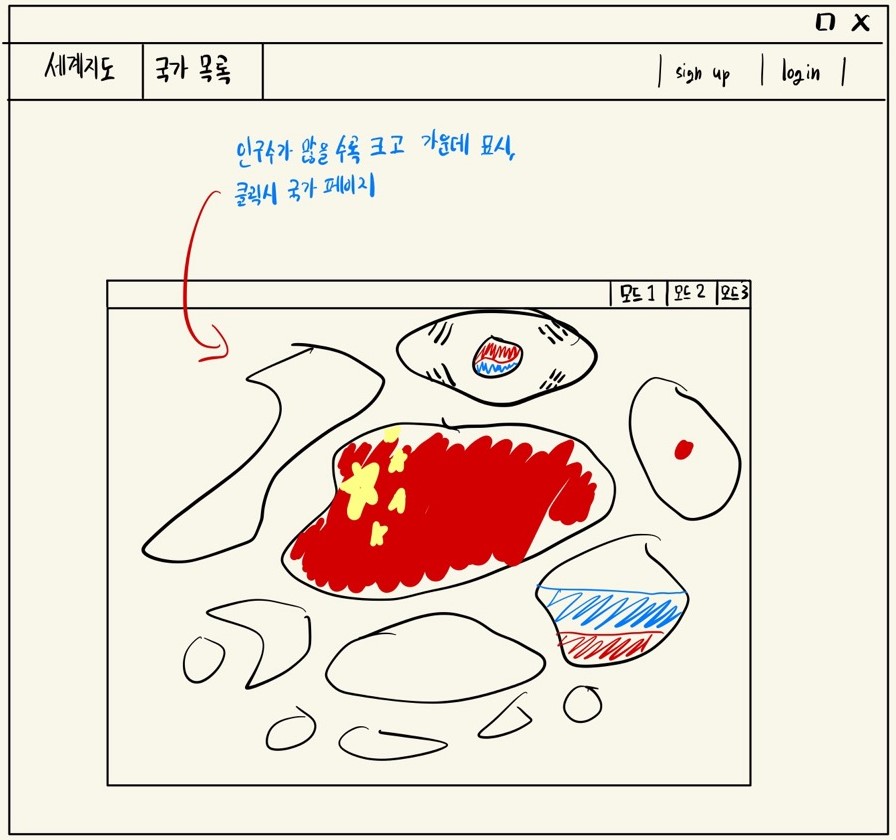 세계지도 국가 목록 sign up login
인구수가 많을수록 크고 가운데 표시,
클릭시 국가 페이지
모드1 모드2 모드3